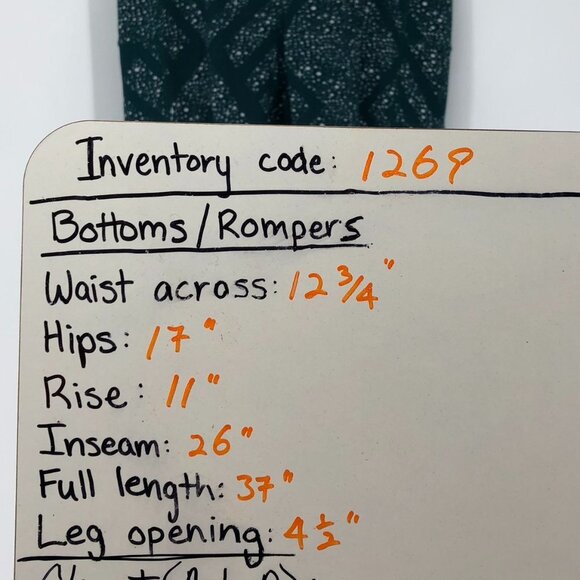 Inventory code: 1269
Bottoms/Rompers
Waist across: 12 3/4"
Hips: 17"
Rise: 11"
Inseam: 26"
Full length: 37"
Leg opening: 4 1/2"